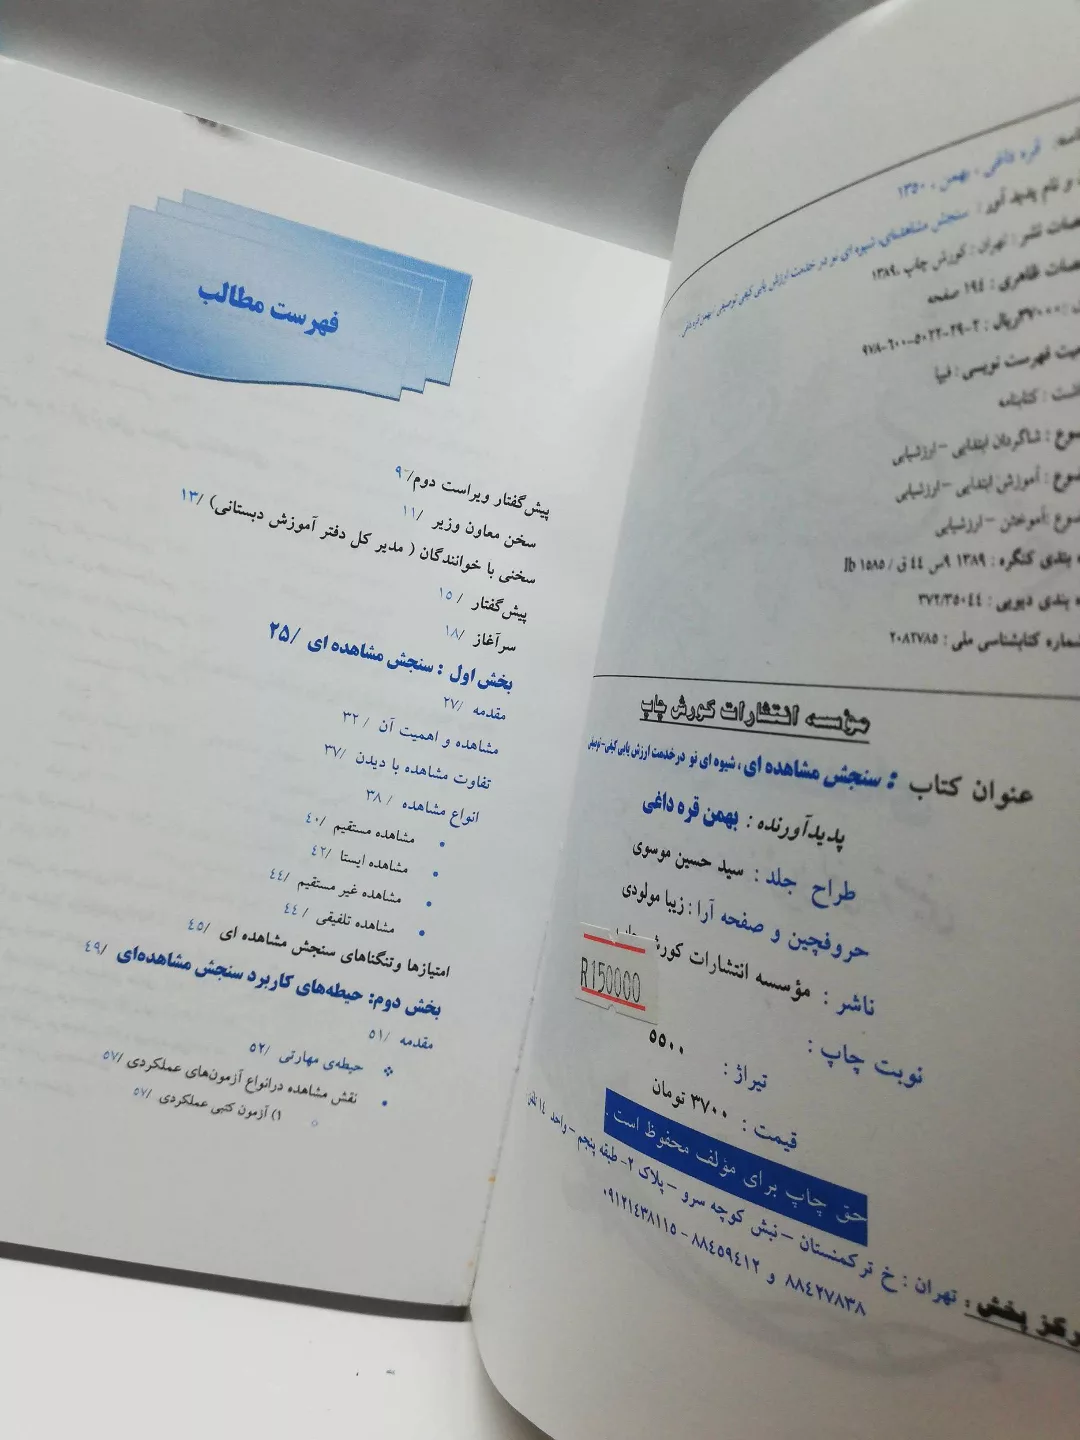 قره داغی ، بهمن ، ۱۳۵۰
و نام پدید آور : سنجش مشاهده‌ای، شیوه ای نو در خدمت ارزش یابی کیفی توصیفی / بهمن قره داغی
نشر : تهران : کورش چاپ ،۱۳۸۹
ظاهری : ۱۹٤ صفحه
۳۷۰۰۰ریال : ۲-۲۹-۵۰۲۲-۶۰۰-۹۷۸
فهرست نویسی : فیپا
: کتابنامه
: شاگردان ابتدایی – ارزشیابی
: آموزش ابتدایی – ارزشیابی
:آموختن – ارزشیابی
بندی کنگره : ۱۳۸۹ ۹س ٤٤ ق / ۱۵۸۵ lb
بندی دیویی : ۳۷۲/۳۵۰٤٤
شماره کتابشناسی ملی : ۲۰۸۲۷۸۵
مؤسسه انتشارات کورش چاپ
عنوان کتاب : سنجش مشاهده ای، شیوه ای نو درخدمت ارزش یابی کیفی-توصیفی
پدیدآورنده : بهمن قره داغی
طراح جلد : سید حسین موسوی
حروفچین و صفحه آرا : زیبا مولودی
ناشر : مؤسسه انتشارات کورش
نوبت چاپ :
R150000
تیراژ : ۵۵۰۰
قیمت : ۳۷۰۰ تومان
حق چاپ برای مؤلف محفوظ است .
بخش : تهران : خ ترکمنستان – نبش کوچه سرو – پلاک ۲- طبقه پنجم – واحد ۱٤ تلفن:
۸۸٤۲۷۸۳۸ و ۸۸٤۵۹٤۱۲ - ۰۹۱۲۱٤۳۸۱۱۵
فهرست مطالب
پیش‌گفتار ویراست دوم/ ۹
سخن معاون وزیر /۱۱
سخنی با خوانندگان ( مدیر کل دفتر آموزش دبستانی) /۱۳
پیش‌گفتار / ۱۵
سرآغاز /۱۸
بخش اول : سنجش مشاهده ای /۲۵
مقدمه /۲۷
مشاهده و اهمیت آن / ۳۲
تفاوت مشاهده با دیدن /۳۷
انواع مشاهده / ۳۸
• مشاهده مستقیم /٤۰
• مشاهده ایستا /٤۲
• مشاهده غیر مستقیم /٤٤
• مشاهده تلفیقی / ٤٤
امتیازها وتنگناهای سنجش مشاهده ای /٤۵
بخش دوم: حیطه‌های کاربرد سنجش مشاهده‌ای /٤۹
مقدمه /۵۱
❖ حیطه‌ی مهارتی /۵۲
• نقش مشاهده درانواع آزمون‌های عملکردی /۵۷
۱) آزمون کتبی عملکردی /۵۷